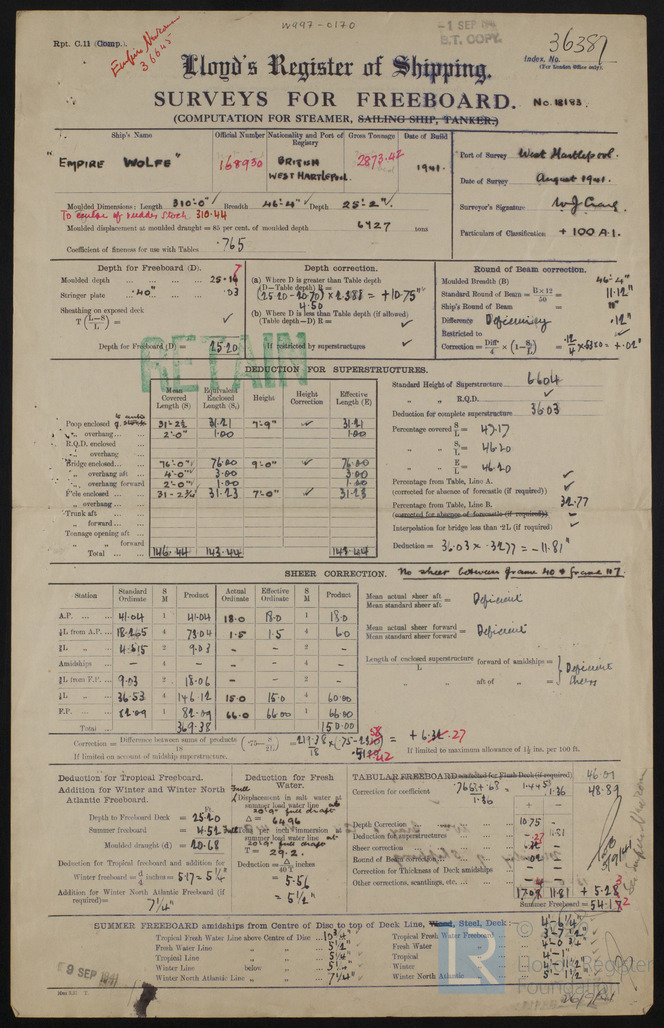 W497-0170
Rpt. C.11 (Comp.).
36645
1 SEP 1941
B.T. COPY.
36387
Index. No.
(For London Office only).
Lloyd's Register of Shipping.
SURVEYS FOR FREEBOARD. No. 18183.
(COMPUTATION FOR STEAMER, SAILING SHIP, TANKER.)
Ship's Name
Official Number
Nationality and Port of Registry
Gross Tonnage
Date of Build
"EMPIRE WOLFE"
168930
BRITISH
WEST HARTLEPOOL.
2873.42
1941.
Port of Survey West Hartlepool.
Date of Survey August 1941.
Surveyor's Signature
Particulars of Classification +100 A.1.
Moulded Dimensions: Length 310'-0" Breadth 46'-4" Depth 25'-2"
To centre of rudder stock. 310.44
Moulded displacement at moulded draught = 85 per cent. of moulded depth 6427 tons
Coefficient of fineness for use with Tables .765
Depth for Freeboard (D).
Moulded depth
Stringer plate .40" .03
Sheathing on exposed deck
T (L-S/L) =
Depth for Freeboard (D) = 25.20
Depth correction.
(a) Where D is greater than Table depth
(D—Table depth) R =
(25.20-20.70) × 2.388 = +10.75"
4.50
(b) Where D is less than Table depth (if allowed)
(Table depth—D) R =
If restricted by superstructures
Round of Beam correction.
Moulded Breadth (B) 46'-4"
Standard Round of Beam = B×12/50 = 11.12"
Ship's Round of Beam = 11"
Difference Deficiency .12"
Restricted to
Correction = Diff/4 × (1 - S/L) = .12/4 × .5300 = +.02"
RETAIN
DEDUCTION FOR SUPERSTRUCTURES.
Mean Covered Length (S)
Equivalent Enclosed Length (S₁)
Height
Height Correction
Effective Length (E)
Poop enclosed 31-2½ 31.21 7'-9" 31.21
„ overhang 2'-0" 1.00 1.00
R.Q.D. enclosed
„ overhang
Bridge enclosed 76'-0" 76.00 9'-0" 76.00
„ overhang aft 4'-0" 3.00 3.00
„ overhang forward 2'-0" 1.00 1.00
F'cle enclosed 31-2¾ 31.23 7'-0" 31.23
„ overhang
Trunk aft
„ forward
Tonnage opening aft
„ „ forward
Total 146.44 143.44 143.44
Standard Height of Superstructure 6.604
„ „ R.Q.D.
Deduction for complete superstructure 36.03
Percentage covered S/L = 47.17
„ S₁/L = 46.20
„ E/L = 46.20
Percentage from Table, Line A.
(corrected for absence of forecastle (if required))
Percentage from Table, Line B. 32.77
(corrected for absence of forecastle (if required))
Interpolation for bridge less than .2L (if required)
Deduction = 36.03 × .3277 = -11.81"
SHEER CORRECTION. No sheer between frame 40 & frame 117.
Station
Standard Ordinate
S M
Product
Actual Ordinate
Effective Ordinate
S M
Product
A.P. 41.04 1 41.04 18.0 18.0 1 18.0
⅙L from A.P. 18.265 4 73.04 1.5 1.5 4 6.0
⅓L 4.515 2 9.03 - - 2 -
Amidships - 4 - - - 4 -
⅓L from F.P. 9.03 2 18.06 - - 2 -
⅙L 36.53 4 146.12 15.0 15.0 4 60.00
F.P. 82.09 1 82.09 66.0 66.00 1 66.00
Total 369.38 150.00
Mean actual sheer aft
Mean standard sheer aft = Deficient
Mean actual sheer forward
Mean standard sheer forward = Deficient
Length of enclosed superstructure / L forward of amidships =
„ „ aft of „ =
Deficient Sheer
Correction = Difference between sums of products / 18 (.75 - S/2L) = 219.38/18
If limited on account of midship superstructure.
If limited to maximum allowance of 1½ ins. per 100 ft.
Deduction for Tropical Freeboard.
Addition for Winter and Winter North Atlantic Freeboard.
Ft.
Depth to Freeboard Deck = 25.20
Summer freeboard = 4.52
Moulded draught (d) = 20.68
Deduction for Tropical freeboard and addition for
Winter freeboard = d/4 inches = 5.17 = 5¼"
Addition for Winter North Atlantic Freeboard (if required) =
7¼"
Deduction for Fresh Water.
Displacement in salt water at
summer load water line
Δ = 6496
Tons per inch immersion at
summer load water line
T = 29.2.
Deduction = Δ/40T inches
= 5.56
= 5½"
TABULAR FREEBOARD corrected for Flush Deck (if required) 46.01
Correction for coefficient .765+.68 / 1.36 = 1.445/1.36 48.89
+ -
Depth Correction 10.75
Deduction for superstructures 11.81
Sheer correction
Round of Beam correction .02
Correction for Thickness of Deck amidships
Other corrections, scantlings, etc.
11.81
Summer Freeboard =
SUMMER FREEBOARD amidships from Centre of Disc to top of Deck Line, Wood, Steel, Deck: 4'-6¼"
Tropical Fresh Water Line above Centre of Disc 10¾"
Fresh Water Line „ „ 5½"
Tropical Line „ „ 5¼"
Winter Line below „ 5¼"
Winter North Atlantic Line „ „ 7¼"
Tropical Fresh Water Freeboard 3'-7½"
Fresh Water „ 4'-0¾"
Tropical „
Winter „
Winter North Atlantic „
9 SEP 1941
LR
© Lloyd's Register Foundation